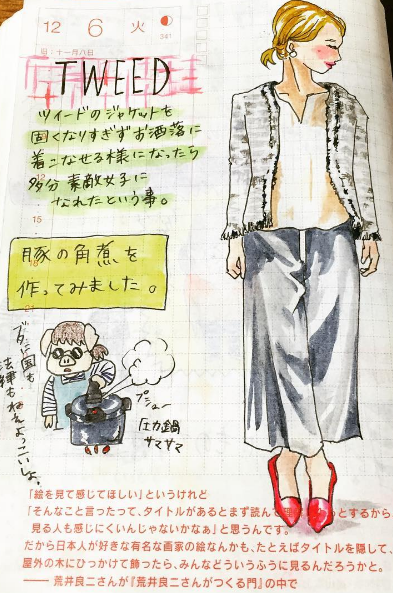 12 6 火
341
旧:十一月八日
TWEED
ツイードのジャケットを
固くなりすぎずお洒落に
着こなせる様になったら
多分 素敵女子に
なれたという事。
12
15
豚の角煮を
作ってみました。
21
ブタに国も
法律もねぇよっこいしょ。
プシュー
圧力鍋
サマサマ
「絵を見て感じてほしい」というけれど
「そんなこと言ったって、タイトルがあるとまず読んで理 とするから、
見る人も感じにくいんじゃないかなぁ」と思うんです。
だから日本人が好きな有名な画家の絵なんかも、たとえばタイトルを隠して、
屋外の木にひっかけて飾ったら、みんなどういうふうに見るんだろうかと。
── 荒井良二さんが『荒井良二さんがつくる門』の中で